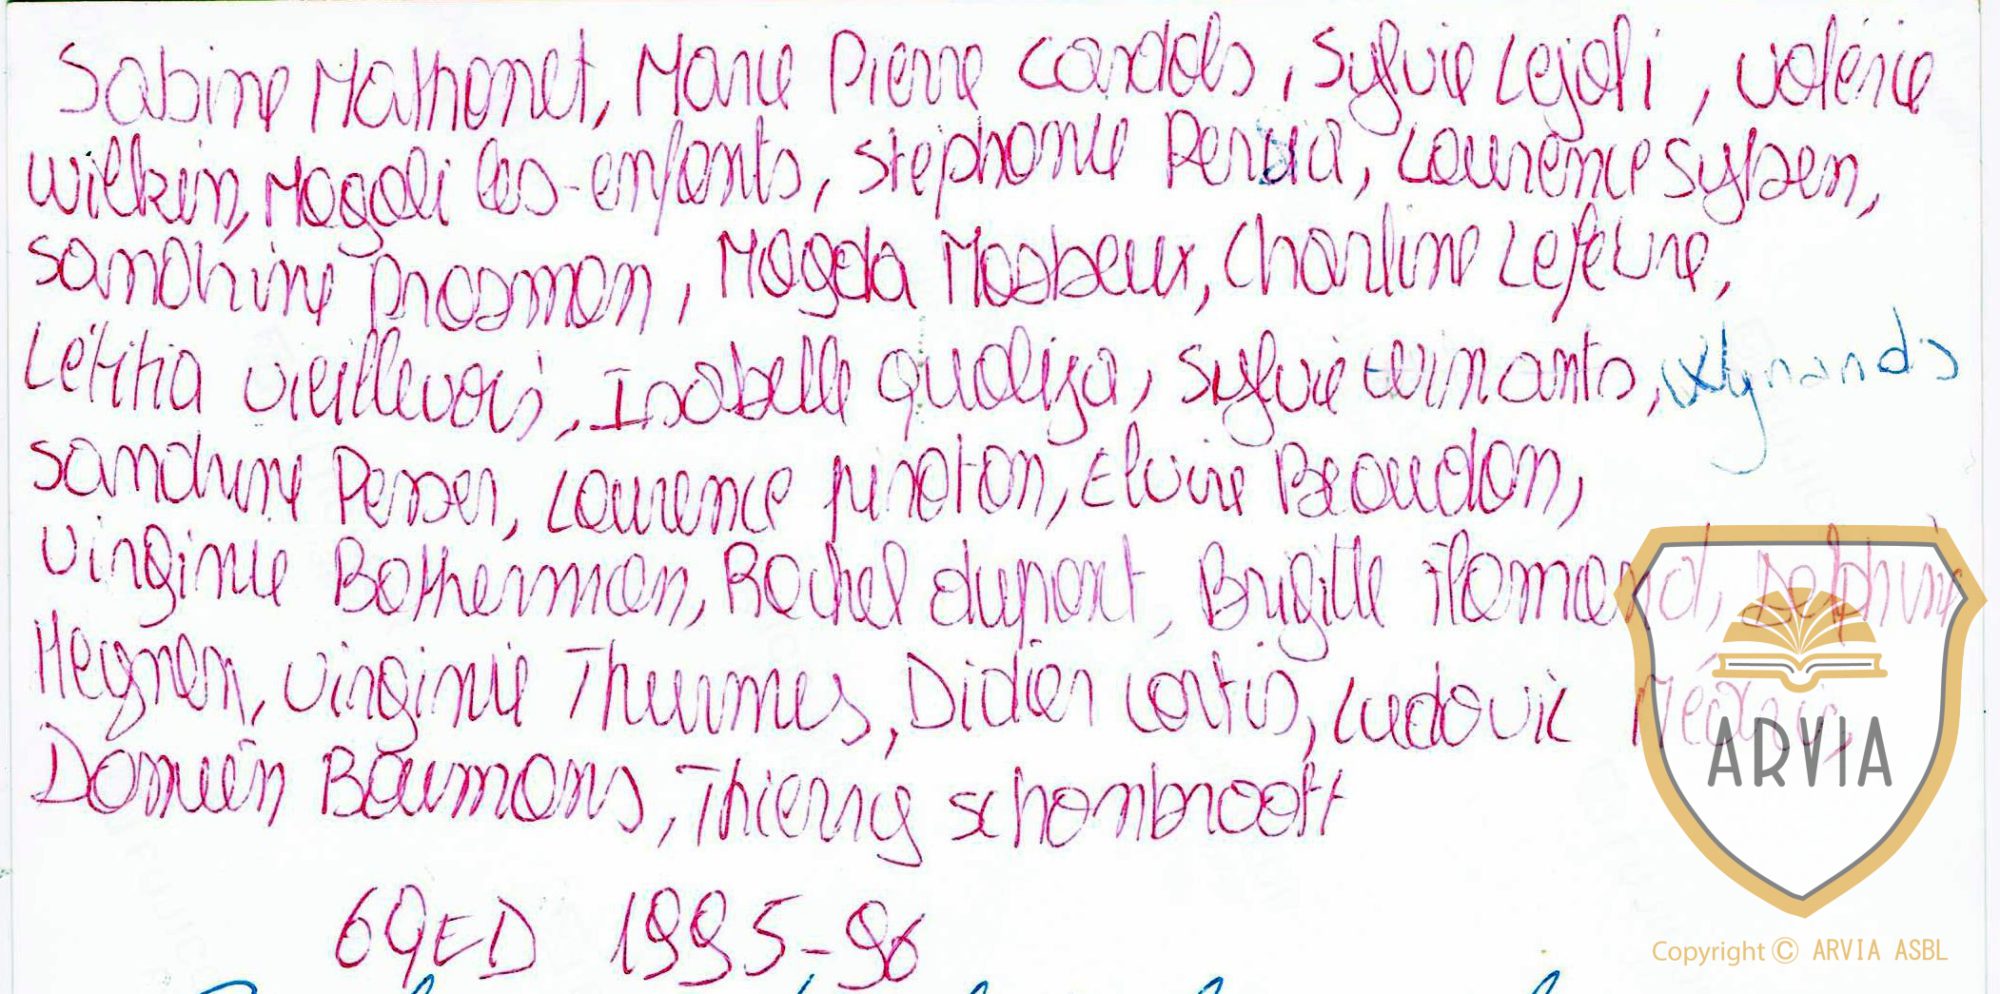 Sabine Mathonet, Marie Pierre Cardols, Sylvie Lejoli, Valérie
Wilkin, Magali les-enfants, Stephanie Persia, Laurence Sypsen,
Sandrine Prosmon, Magda Mosbeux, Charline Lefevre,
Létitia Vieillevois, Isabelle Qualiza, Sylvie winants, Wynands
Sandrine Pesser, Laurence piroton, Elvire Beaudon,
Virginie Botherman, Rachel dupont, Brigitte flamand, Delphine
Heynen, Virginie Thurmes, Didier Cortis, Ludovic
Damien Baumans, Thierry schonbroott
6QED 1995-96
ARVIA
Copyright © ARVIA ASBL